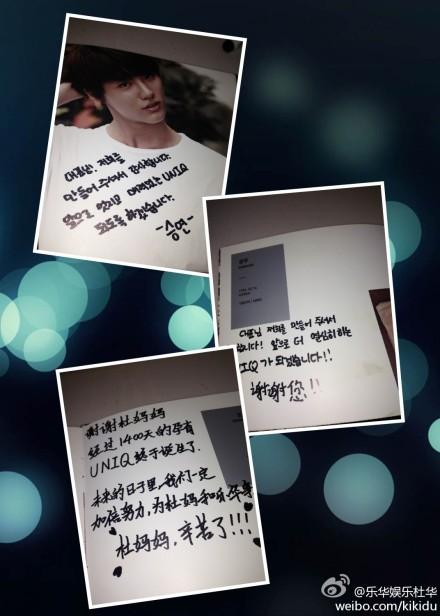 대표님! 저희를
만들어 주셔서 감사합니다.
앞으로 멋지고 대박나는 UNIQ
되도록 하겠습니다.
-승연-
대표님 저희를 만들어 주셔서
합니다! 앞으로 더 열심히하는
NIQ가 되겠습니다!!
谢谢您!!
谢谢杜妈妈
经过1400天的孕育
UNIQ终于诞生了.
未来的日子里,我们一定
加倍努力,为杜妈妈和
杜妈妈,辛苦了!!!
@乐华娱乐杜华
weibo.com/kikidu